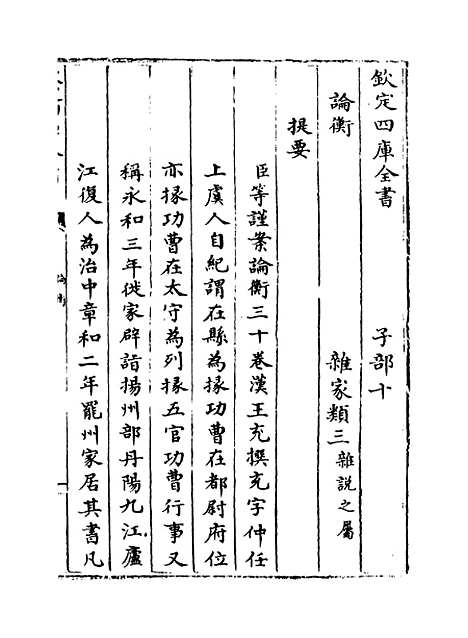 欽定四庫全書　子部十
論衡　雜家類三雜說之屬
提要
臣等謹案論衡三十卷漢王充撰充字仲任
上虞人自紀謂在縣為掾功曹在都尉府位
亦掾功曹在太守為列掾五官功曹行事又
稱永和三年徙家辟詣揚州部丹陽九江廬
江復人為治中章和二年罷州家居其書凡
論衡